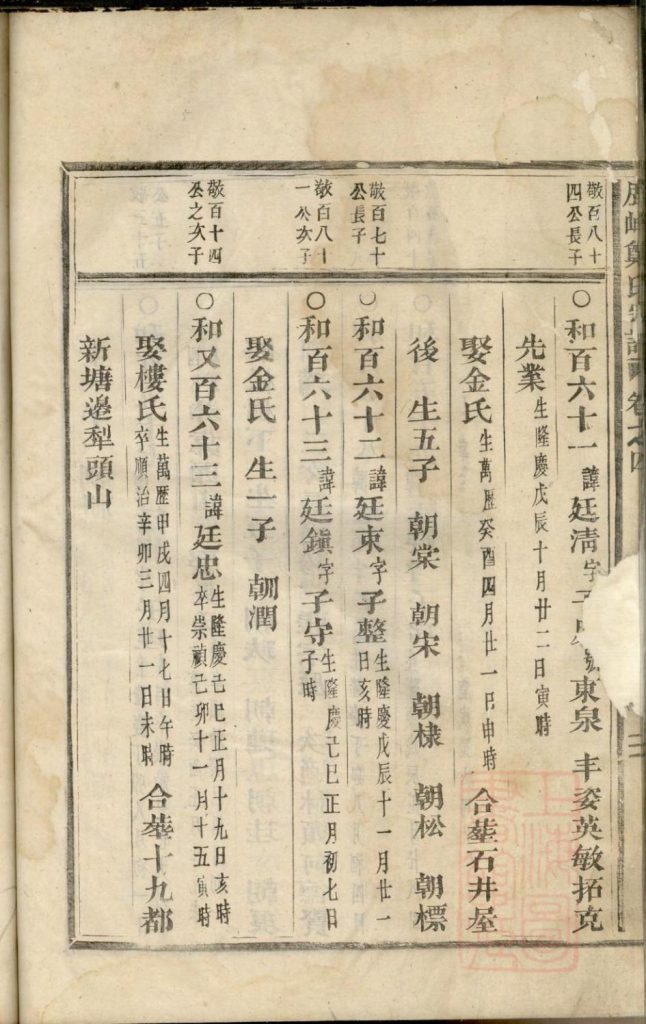 鄭氏宗譜 卷之四
敬百八十
四公長子
○和百六十一 諱廷淸字 東泉 丰姿英敏拓克
先業 生隆慶戊辰十月廿二日寅時
娶金氏 生萬歷癸酉四月廿一巳申時 合塟石井屋
後 生五子 朝棠 朝宋 朝棣 朝松 朝標
敬百七十
公長子
○和百六十二 諱廷束字子整 生隆慶戊辰十一月廿一
日亥時
敬百八十
一公次子
○和百六十三 諱廷鎮字子守 生隆慶己巳正月初七日
子時
娶金氏 生一子 朝潤
敬百十四
公之次子
○和又百六十三 諱廷忠 生隆慶己巳正月十九日亥時
卒崇禎己卯十一月十五寅時
娶樓氏 生萬歷甲戌四月十七日午時
卒順治辛卯三月廿一日未時 合塟十九都
新塘邊犁頭山